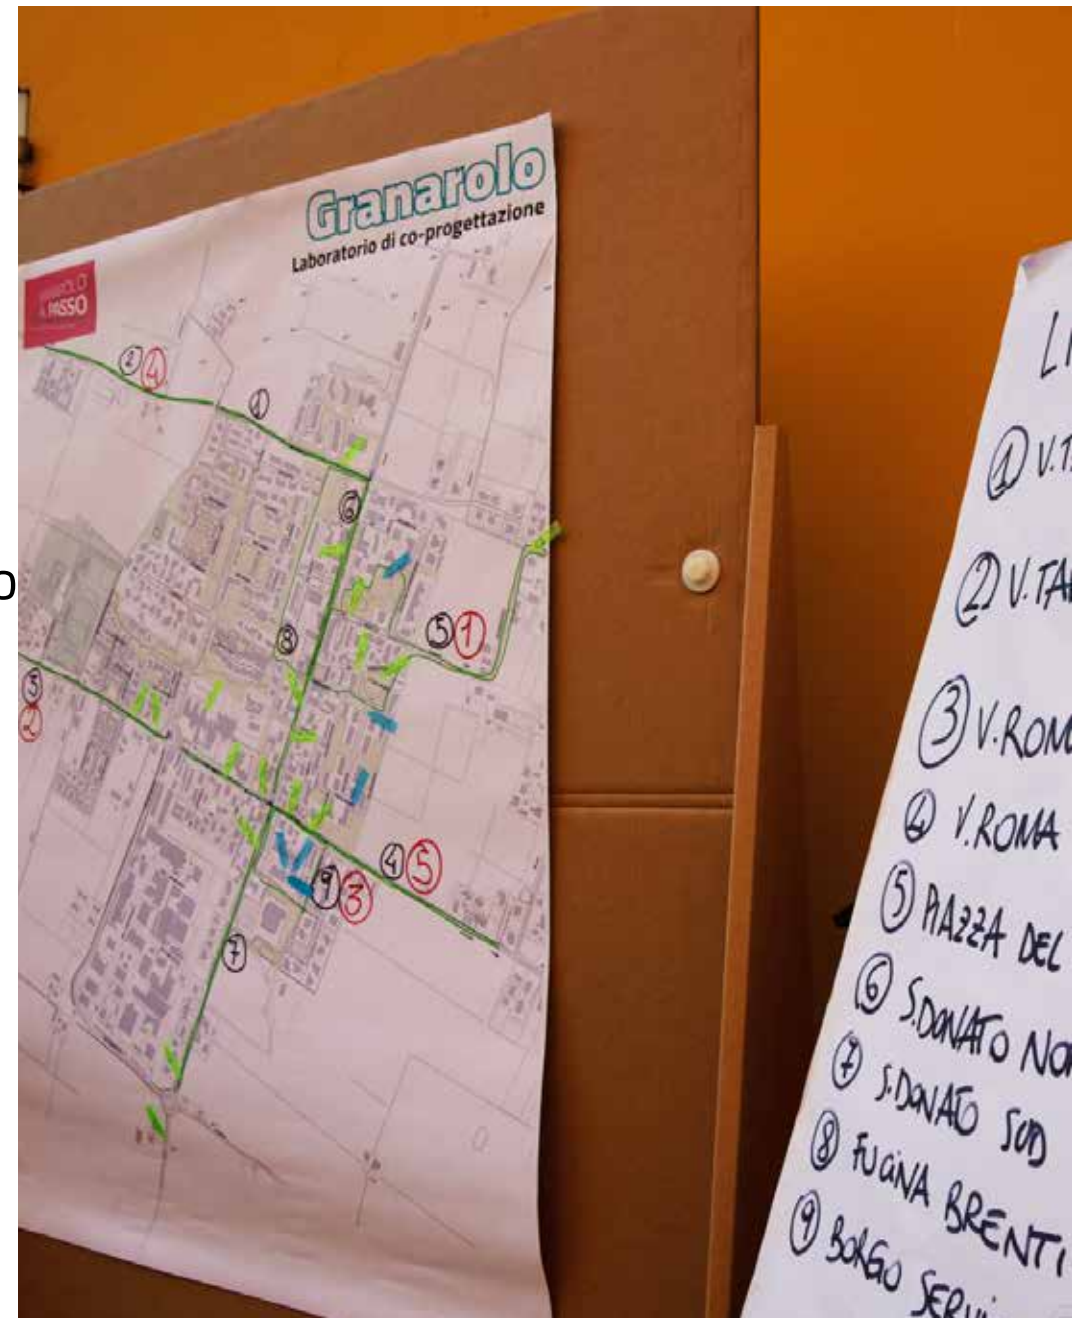 Granarolo
Laboratorio di co-progettazione
A PASSO
2 4
1
6
8
5 1
3
2
4 5
9 3
7
LI
1 V.T
2 V.TA
3 V.ROM
4 V.ROMA
5 PIAZZA DEL
6 S.DONATO NO
7 S.DONATO SUD
8 FUCINA BRENTI
9 BORGO SERVI
O